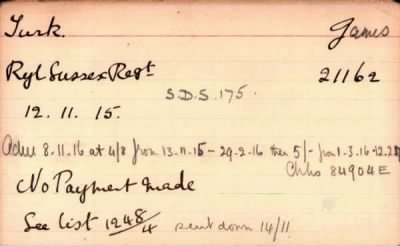 Turk. James
Ryl Sussex Regt 21162
S.D.S. 175.
12. 11. 15.
Adm 8-11-16 at 4/8 from 13-11-15 - 29-2-16 then 5/- from 1-3-16
84904E
No Payment made
See list 1248/4 sent down 14/11